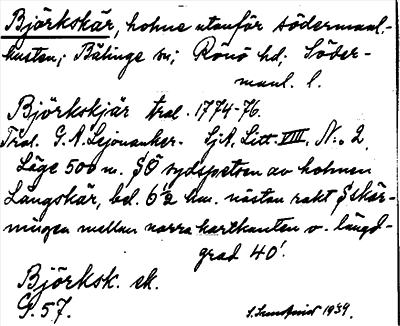 Björkskär, holme utanför södermanl.-
kusten; Bälinge sn; Rönö hd; Söder-
manl. l.
Björkskjär tral. 1774-76.
Tral. G. A. Lejonanker. SjA, Litt. VIII, N:o 2
Läge 500 m. SÖ sydspetsen av holmen
Långskär, bel. 6½ km. nästan rakt S skär-
ningen mellan norra kartkanten o. längd-
grad 40'.
Björksk. sk.
G. 57.
1939.